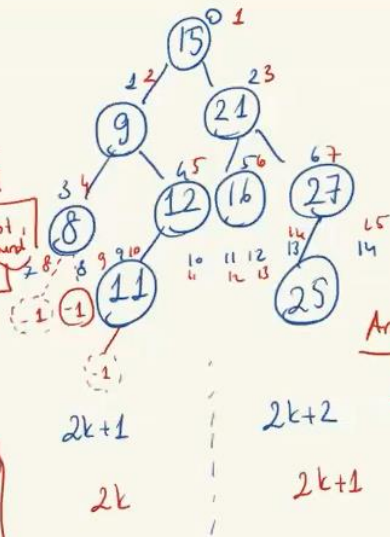 15 0 1
1 2 2 3
9 21
3 4 4 5 5 6 6 7
8 12 16 27
7 8 8 9 9 10 10 11 11 12 12 13 13 14 14 15
-1 -1 11 25
-1
2k+1 2k+2
2k 2k+1